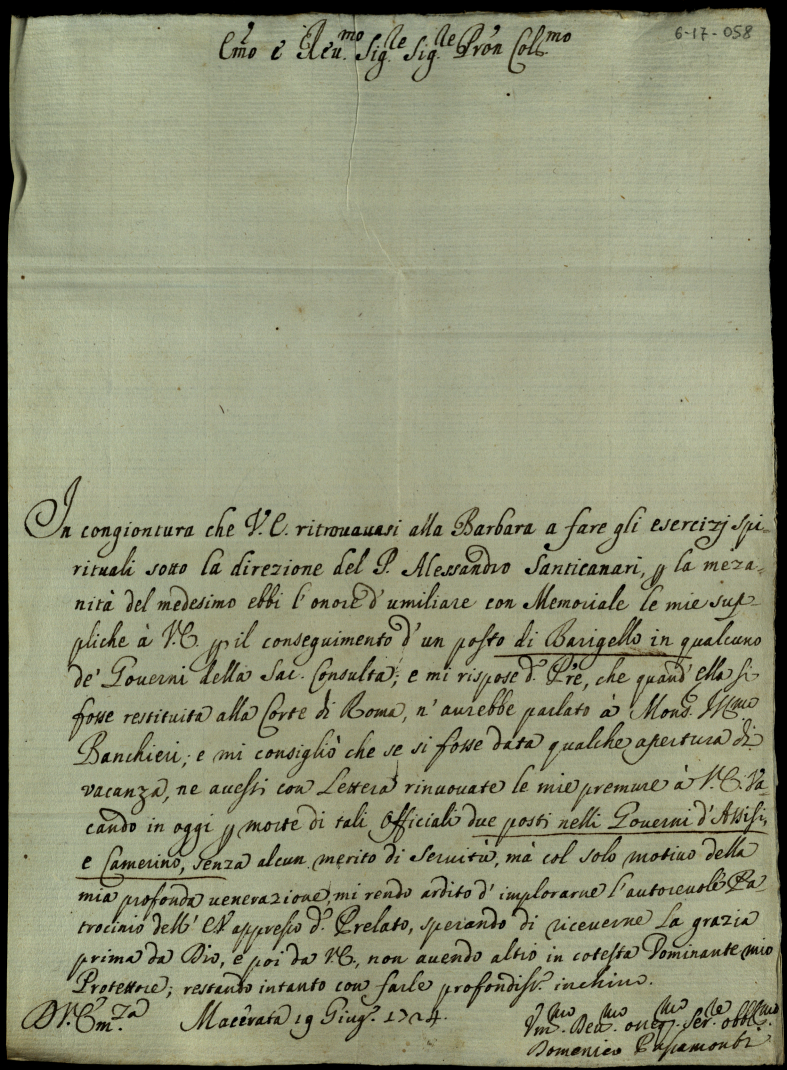 6-17-058
Em̃o e Reu.mo Sig.re Sig.re Prõn Col.mo
In congiontura che V. E. ritrouauasi alla Barbara a fare gli esercizj spi-
rituali sotto la direzione del P. Alessandro Santicanari, p la meza-
nità del medesimo ebbi l'onore d'umiliare con Memoriale le mie sup-
pliche à V. E. p il conseguimento d'un posto di Barigello in qualcuno
de' Gouerni della Sac. Consulta; e mi rispose d.º Prẽ, che quand'ella si
fosse restituita alla Corte di Roma, n'aurebbe parlato à Mons. Ill.mo
Banchieri; e mi consigliò che se si fosse data qualche apertura di
vacanza, ne auessi con Lettera rinuouate le mie premure à V. E. Va-
cando in oggi p morte di tali Officiali due posti nelli Gouerni d'Assisi,
e Camerino, senza alcun merito di Seruitù, mà col solo motiuo della
mia profonda uenerazione, mi rendo ardito d'implorarne l'autoreuole Pa-
trocinio dell' E. V. appresso d.º Prelato, sperando di riceuerne la grazia
prima da Dio, e poi da V. E., non auendo altro in cotesta Dominante mio
Protettore; restando intanto con farle profondiss.º inchino.
D V. Em.za Macerata 19 Giug.º 1724.
Vm.mo Deu.mo Obblig.mo
Domenico